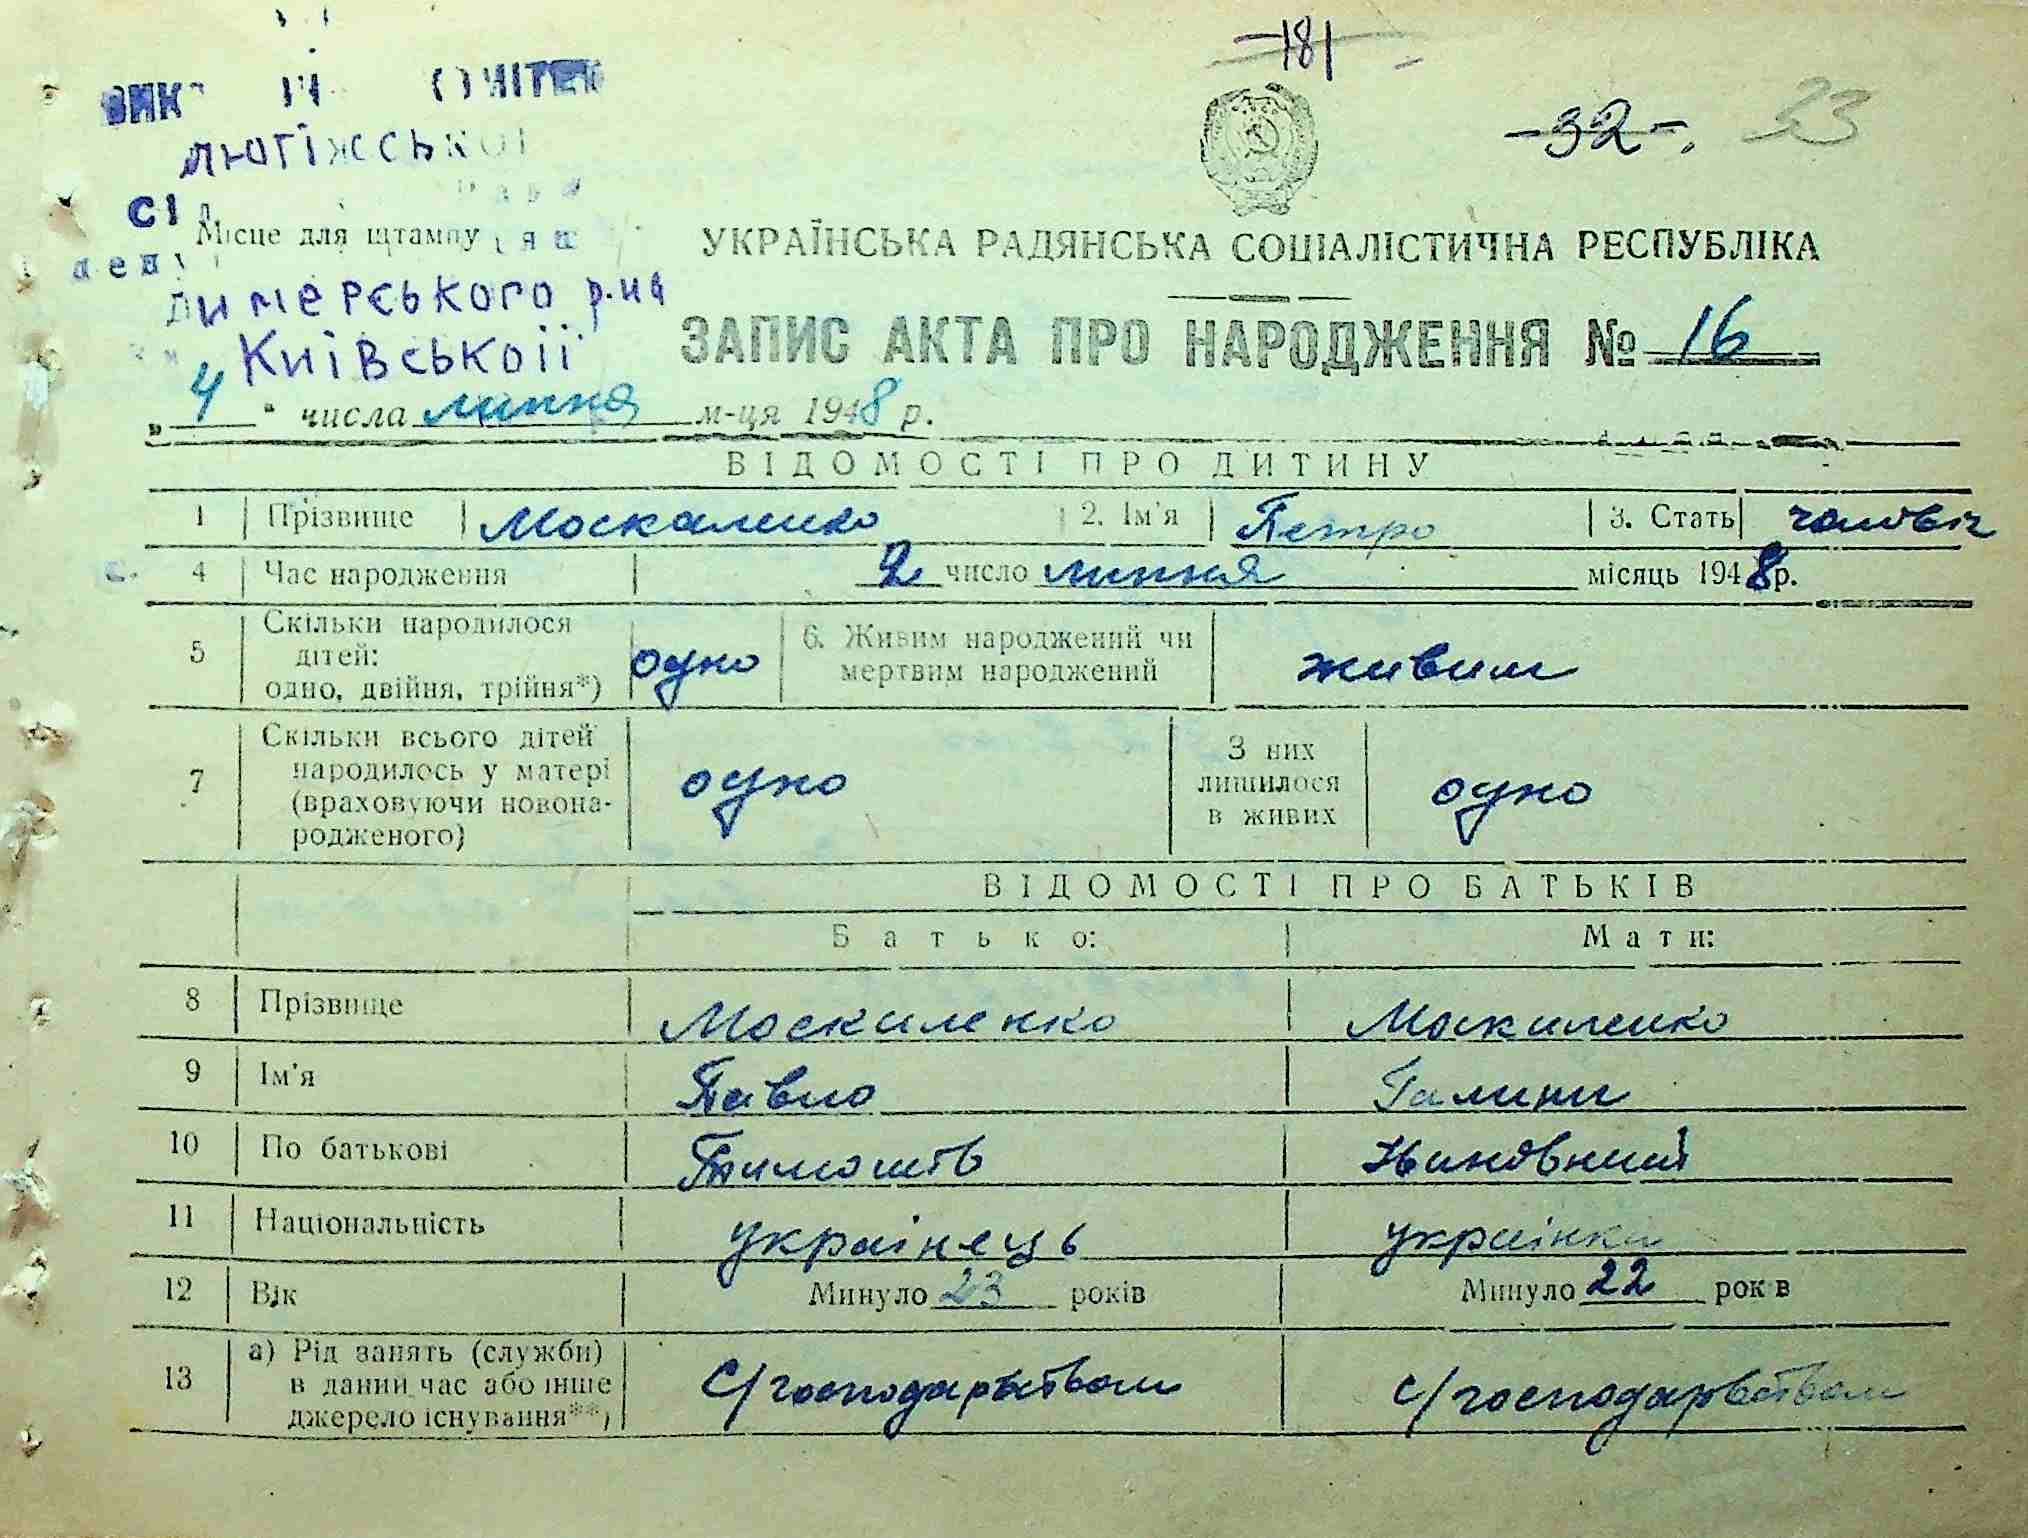 181
32 23
ЛЮТІЖССЬКОЇ
Місце для штампу
УКРАЇНСЬКА РАДЯНСЬКА СОЦІАЛІСТИЧНА РЕСПУБЛІКА
Димерського р-на
Київськоії
ЗАПИС АКТА ПРО НАРОДЖЕННЯ № 16
„4“ числа липня м-ця 1948 р.
ВІДОМОСТІ ПРО ДИТИНУ
1 Прізвище Москаленко 2. Ім'я Петро 3. Стать чоловіч
4 Час народження 2 число липня місяць 1948 р.
5 Скільки народилося
дітей:
одно, двійня, трійня*) одно 6. Живим народжений чи
мертвим народжений живим
7 Скільки всього дітей
народилось у матері
(враховуючи новона-
родженого) одно З них
лишилося
в живих одно
ВІДОМОСТІ ПРО БАТЬКІВ
Батько: Мати:
8 Прізвище Москаленко Москаленко
9 Ім'я Павло Галина
10 По батькові
11 Національність українець українка
12 Вік Минуло 23 років Минуло 22 рок в
13 а) Рід занять (служби)
в даний час або інше
джерело існування**) с/господарьством с/господарвством